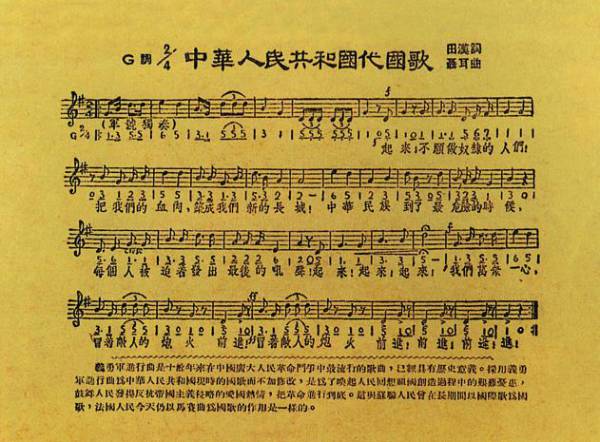 G調 2/4 中華人民共和國代國歌 田漢詞
聶耳曲
(軍號獨奏)
起來!不願做奴隸的人們!
把我們的血肉,築成我們新的長城!中華民族到了最危險的時候,
每個人被迫着發出最後的吼聲!起來!起來!起來!我們萬衆一心,
冒着敵人的炮火前進!冒着敵人的炮火前進!前進!前進!進!
義勇軍進行曲是十餘年來在中國廣大人民革命鬥爭中最流行的歌曲,已經具有歷史意義。採用義勇
軍進行曲爲中華人民共和國現時的國歌而不加修改,是爲了喚起人民回想祖國創造過程中的艱難憂患,
鼓舞人民發揚反抗帝國主義侵略的愛國熱情,把革命進行到底。這與蘇聯人民曾在長期間以國際歌爲國
歌,法國人民今天仍以馬賽曲爲國歌的作用是一樣的。